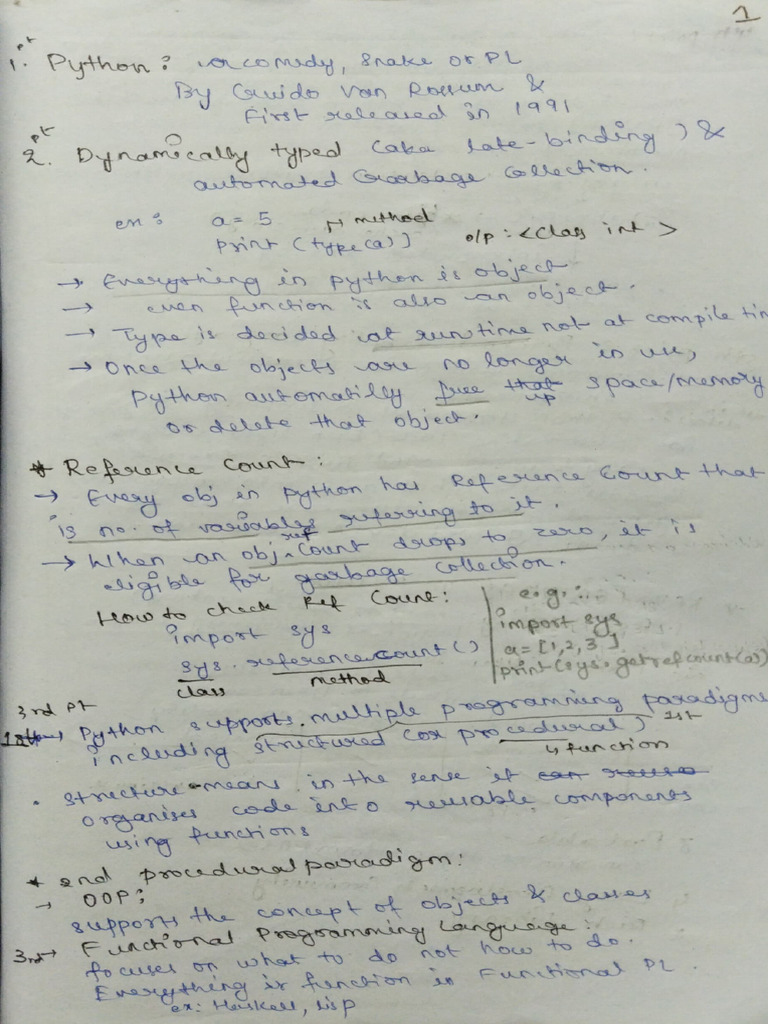 1
1. pt Python : a comedy, snake or PL
By Guido Van Rossum &
First released in 1991
2. pt Dynamically typed (aka late-binding) &
automated Garbage Collection.
ex : a = 5 ↦ method
print (type(a)) o/p : <class int >
→ Everything in python is object
→ even function is also an object.
→ Type is decided at runtime not at compile tim
→ Once the objects are no longer in use,
Python automatilly free up space/memory
or delete that object.
* Reference Count :
→ Every obj in python has Reference Count that
is no. of variables referring to it.
→ When an obj ref Count drops to zero, it is
eligible for garbage collection.
How to check Ref Count : e.g. :
import sys import sys
a = [1,2,3]
sys.referencecount() print(sys.getrefcount(a))
class method
3rd pt
→ Python supports multiple programming paradigms
including structured (or procedural) 1st
↳ function
• Structure means in the sense it
organises code into reusable components
using functions
* 2nd procedural paradigm :
→ OOP :
supports the concept of objects & classes
3rd → Functional Programming Language :
focuses on what to do not how to do.
Everything is function in Functional PL.
ex: Haskell, lisp